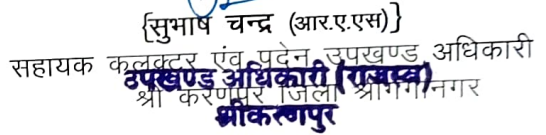 {सुभाष चन्द्र (आर.ए.एस)}
सहायक कलक्टर एंव पदेन उपखण्ड अधिकारी
उपखण्ड अधिकारी (राजस्व)
श्री करणपुर जिला श्रीगंगानगर
श्रीकरणपुर